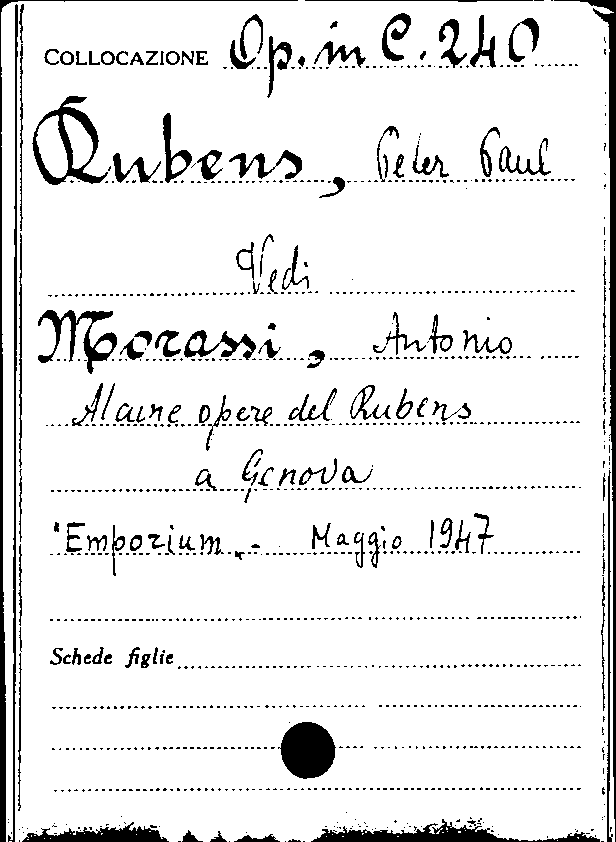 COLLOCAZIONE Op. in C. 240
Rubens, Peter Paul
Vedi
Morassi, Antonio
Alcune opere del Rubens
a Genova
"Emporium„ - Maggio 1947
Schede figlie